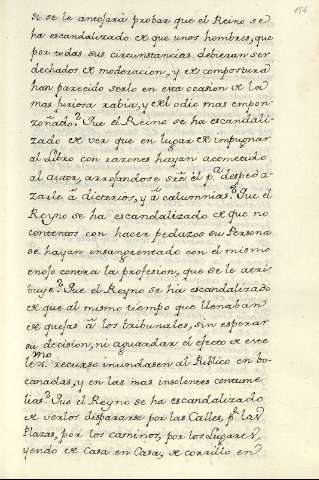 154
si se le antojara probar que el Reino se
ha escandalizado de que unos hombres, que
por todas sus circunstancias debieran ser
dechados de moderacion, y de compostura
han parecido serlo en esta ocasion de la
mas furiosa rabia, y del odio mas empon-
zoñado? Que el Reino se ha escandali-
zado de ver que en lugar de impugnar
al Libro con razones hayan acometado
al autor, arrojandose sre. él pa. despeda-
zarle â dicterios, y â calumnias? Que el
Reyno se ha escandalizado de que no
contentos con hacer pedazos su Persona
se hayan ensangrentado con el mismo
enojo contra la profesion, que se le atri-
buye? Que el Reyno se ha escandalizado
de que al mismo tiempo que llenaban
de quejas â los tribunales, sin esperar
su decision, ni aguardar el efecto de este
lexmo. recurso inundasen al Publico en bo-
canadas, y en las mas insolentes contume-
lias? Que el Reyno se ha escandalizado
de verlos dispararse por las Calles, pr. las
Plazas, por los caminos, por los Lugares,
yendo de Casa en Casa, de corrillo en